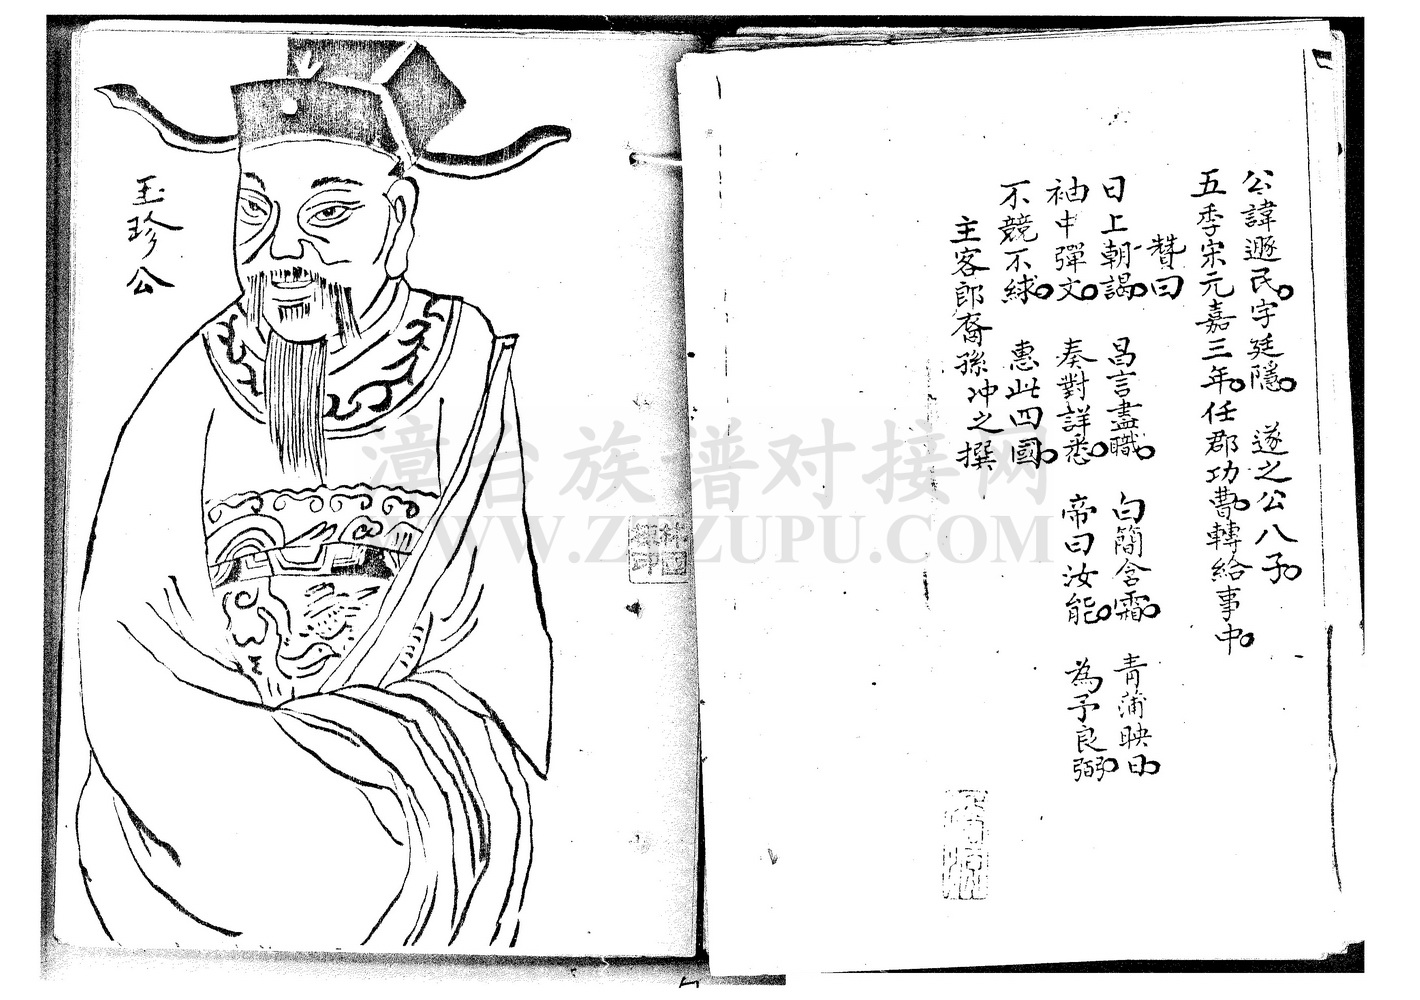 公諱遯民字廷隱 遂之公八子
五季宋元嘉三年任郡功曹轉給事中
贊曰
日上朝謁 昌言盡職 白簡含霜 青蒲映日
袖中彈文 奏對詳悉 帝曰汝能 為予良弼
不競不絿 惠此四國
主客郎裔孫冲之撰
玉珍公
林國
輝印
漳台族谱对接网
WWW.ZTZUPU.COM